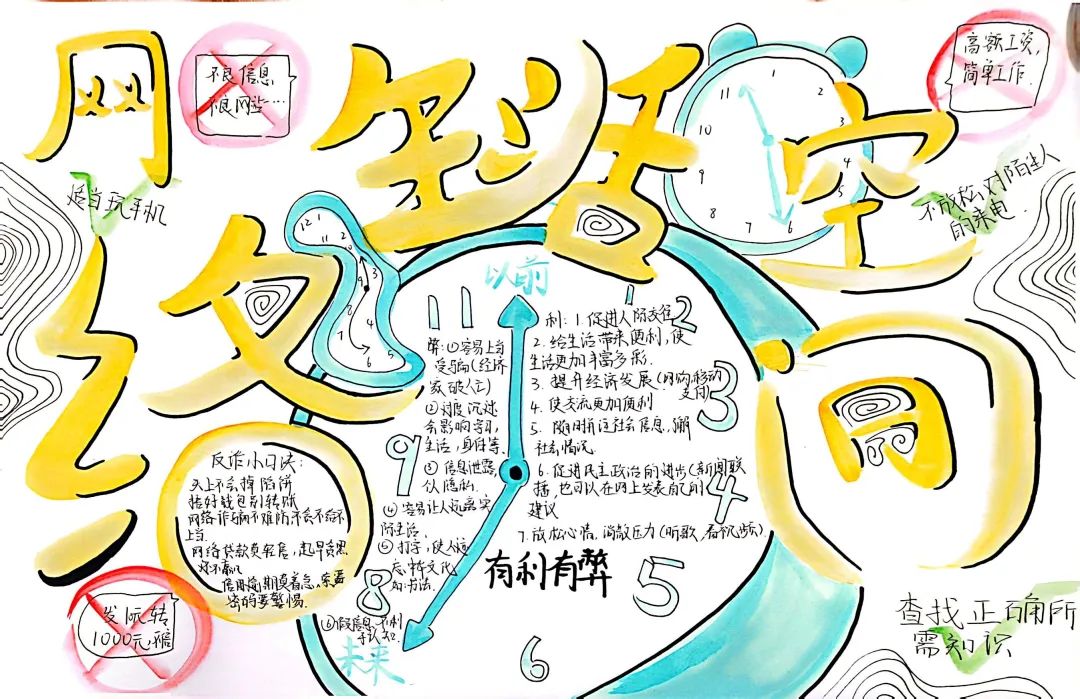 网络生活空间
不良信息
不良网站…
高额工资,
简单工作.
适当玩手机
不放松对陌生人
的来电
12
11
1
2
3
4
5
6
7
8
9
10
以前
利: 1. 促进人际交往
2. 给生活带来便利,使
生活更加丰富多彩.
3. 提升经济发展(网购,移动
支付)
4. 使交流更加便利
5. 随时关注社会信息,
社会情况
6. 促进民主政治的进步(新闻联
播,也可以在网上发表自己的
建议
7. 放松心情,消散压力(听歌,看视频)
弊: ①容易上当
受骗(经济
家破人亡)
②过度沉迷
会影响学习,
生活,身体等.
③信息泄露,
隐私.
④容易让人远离实
际生活.
⑤打字,使人
⑥假信息
有利有弊
11
1
2
3
4
5
6
8
9
未来
反诈小口诀:
天上不会掉馅饼
捂好钱包别转账
网络诈骗不难防
上当
网络贷款真轻信,
密码要警惕.
发
1000元
查找正确所
需知识